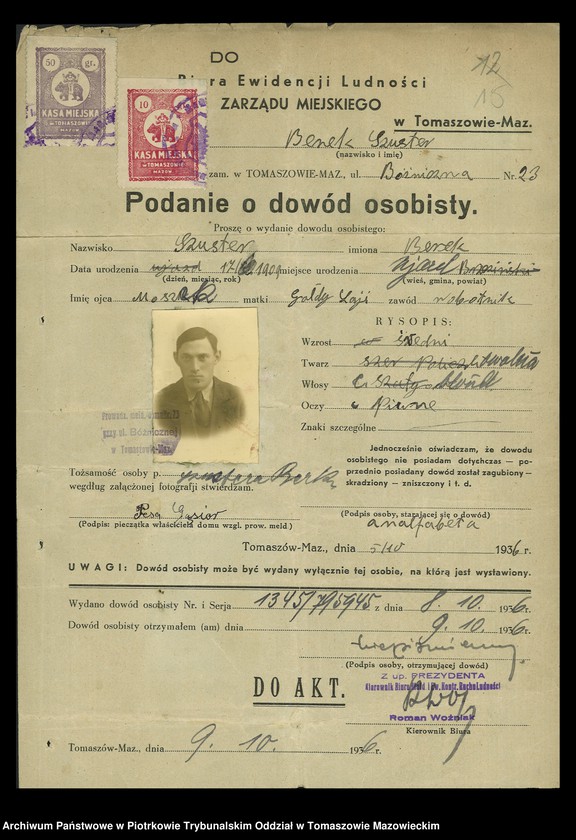 12
15
50 gr.
KASA MIEJSKA
w TOMASZOWIE
MAZOW.
10
KASA MIEJSKA
w TOMASZOWIE
MAZOW.
DO
Biura Ewidencji Ludności
ZARZĄDU MIEJSKIEGO
w Tomaszowie-Maz.
Berek Szuster
(nazwisko i imię)
zam. w TOMASZOWIE-MAZ., ul. Bóżniczna Nr. 23
Podanie o dowód osobisty.
Proszę o wydanie dowodu osobistego:
Nazwisko Szuster imiona Berek
Data urodzenia ujazd 1909 miejsce urodzenia Ujazd Brzeziński
(dzień, miesiąc, rok) (wieś, gmina, powiat)
Imię ojca matki Gołdy Łaji zawód robotnik
RYSOPIS:
Wzrost średni
Twarz owalna
Włosy
Oczy piwne
Znaki szczególne
Jednocześnie oświadczam, że dowodu
osobistego nie posiadam dotychczas — po-
przednio posiadany dowód został zagubiony –
skradziony — zniszczony i t. d.
przy ul. Bóżnicznej
w Tomaszowie-Maz.
Tożsamość osoby p. Szustera Berka
według załączonej fotografii stwierdzam.
Pesa Gąsior
(Podpis: pieczątka właściciela domu wzgl. prow. meld.)
(Podpis osoby, starającej się o dowód)
analfabeta
Tomaszów-Maz., dnia 5/10 1936 r.
UWAGI: Dowód osobisty może być wydany wyłącznie tej osobie, na którą jest wystawiony.
Wydano dowód osobisty Nr. i Serja 1345/795945 z dnia 8. 10. 1936 r.
Dowód osobisty otrzymałem (am) dnia 9. 10. 1936 r.
(Podpis osoby, otrzymującej dowód)
Z up. PREZYDENTA
Kierownik Biura Ewid. i Kontr. Ruchu Ludności
Roman Woźniak
Kierownik Biura
DO AKT.
Tomaszów-Maz., dnia 9. 10. 1936 r.
Archiwum Państwowe w Piotrkowie Trybunalskim Oddział w Tomaszowie Mazowieckim